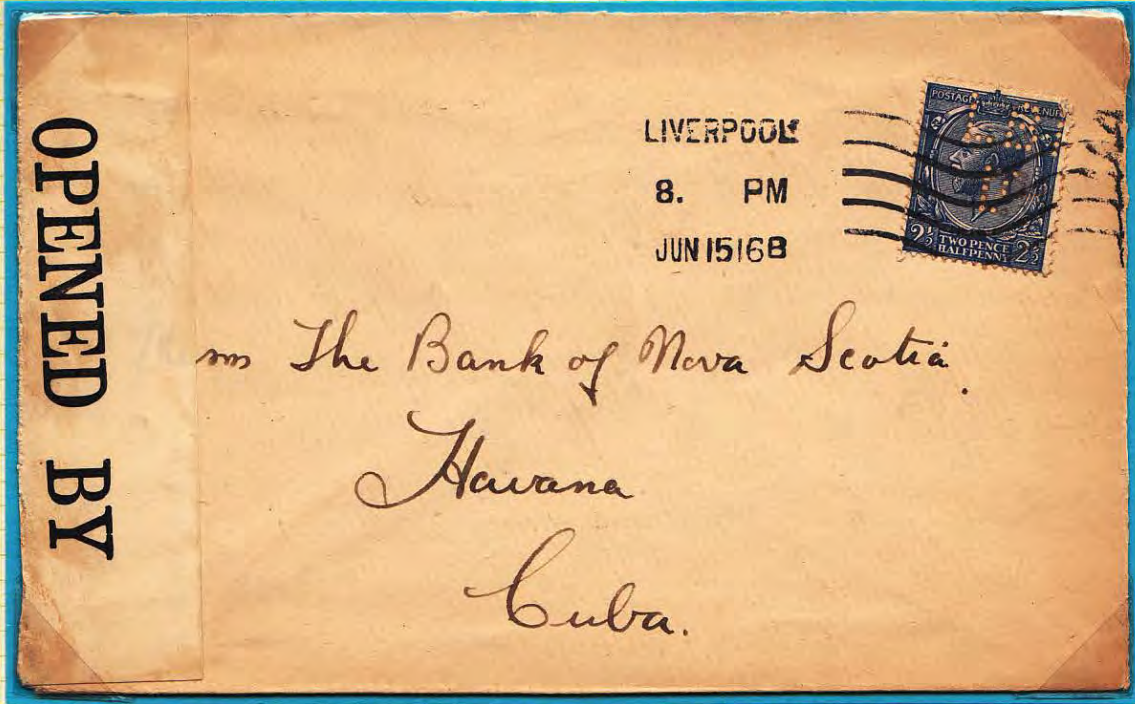 OPENED BY
LIVERPOOL
8. PM
JUN 15 16 B
POSTAGE REVENUE
2½ TWO PENCE HALFPENNY 2½
The Bank of Nova Scotia.
Havana
Cuba.